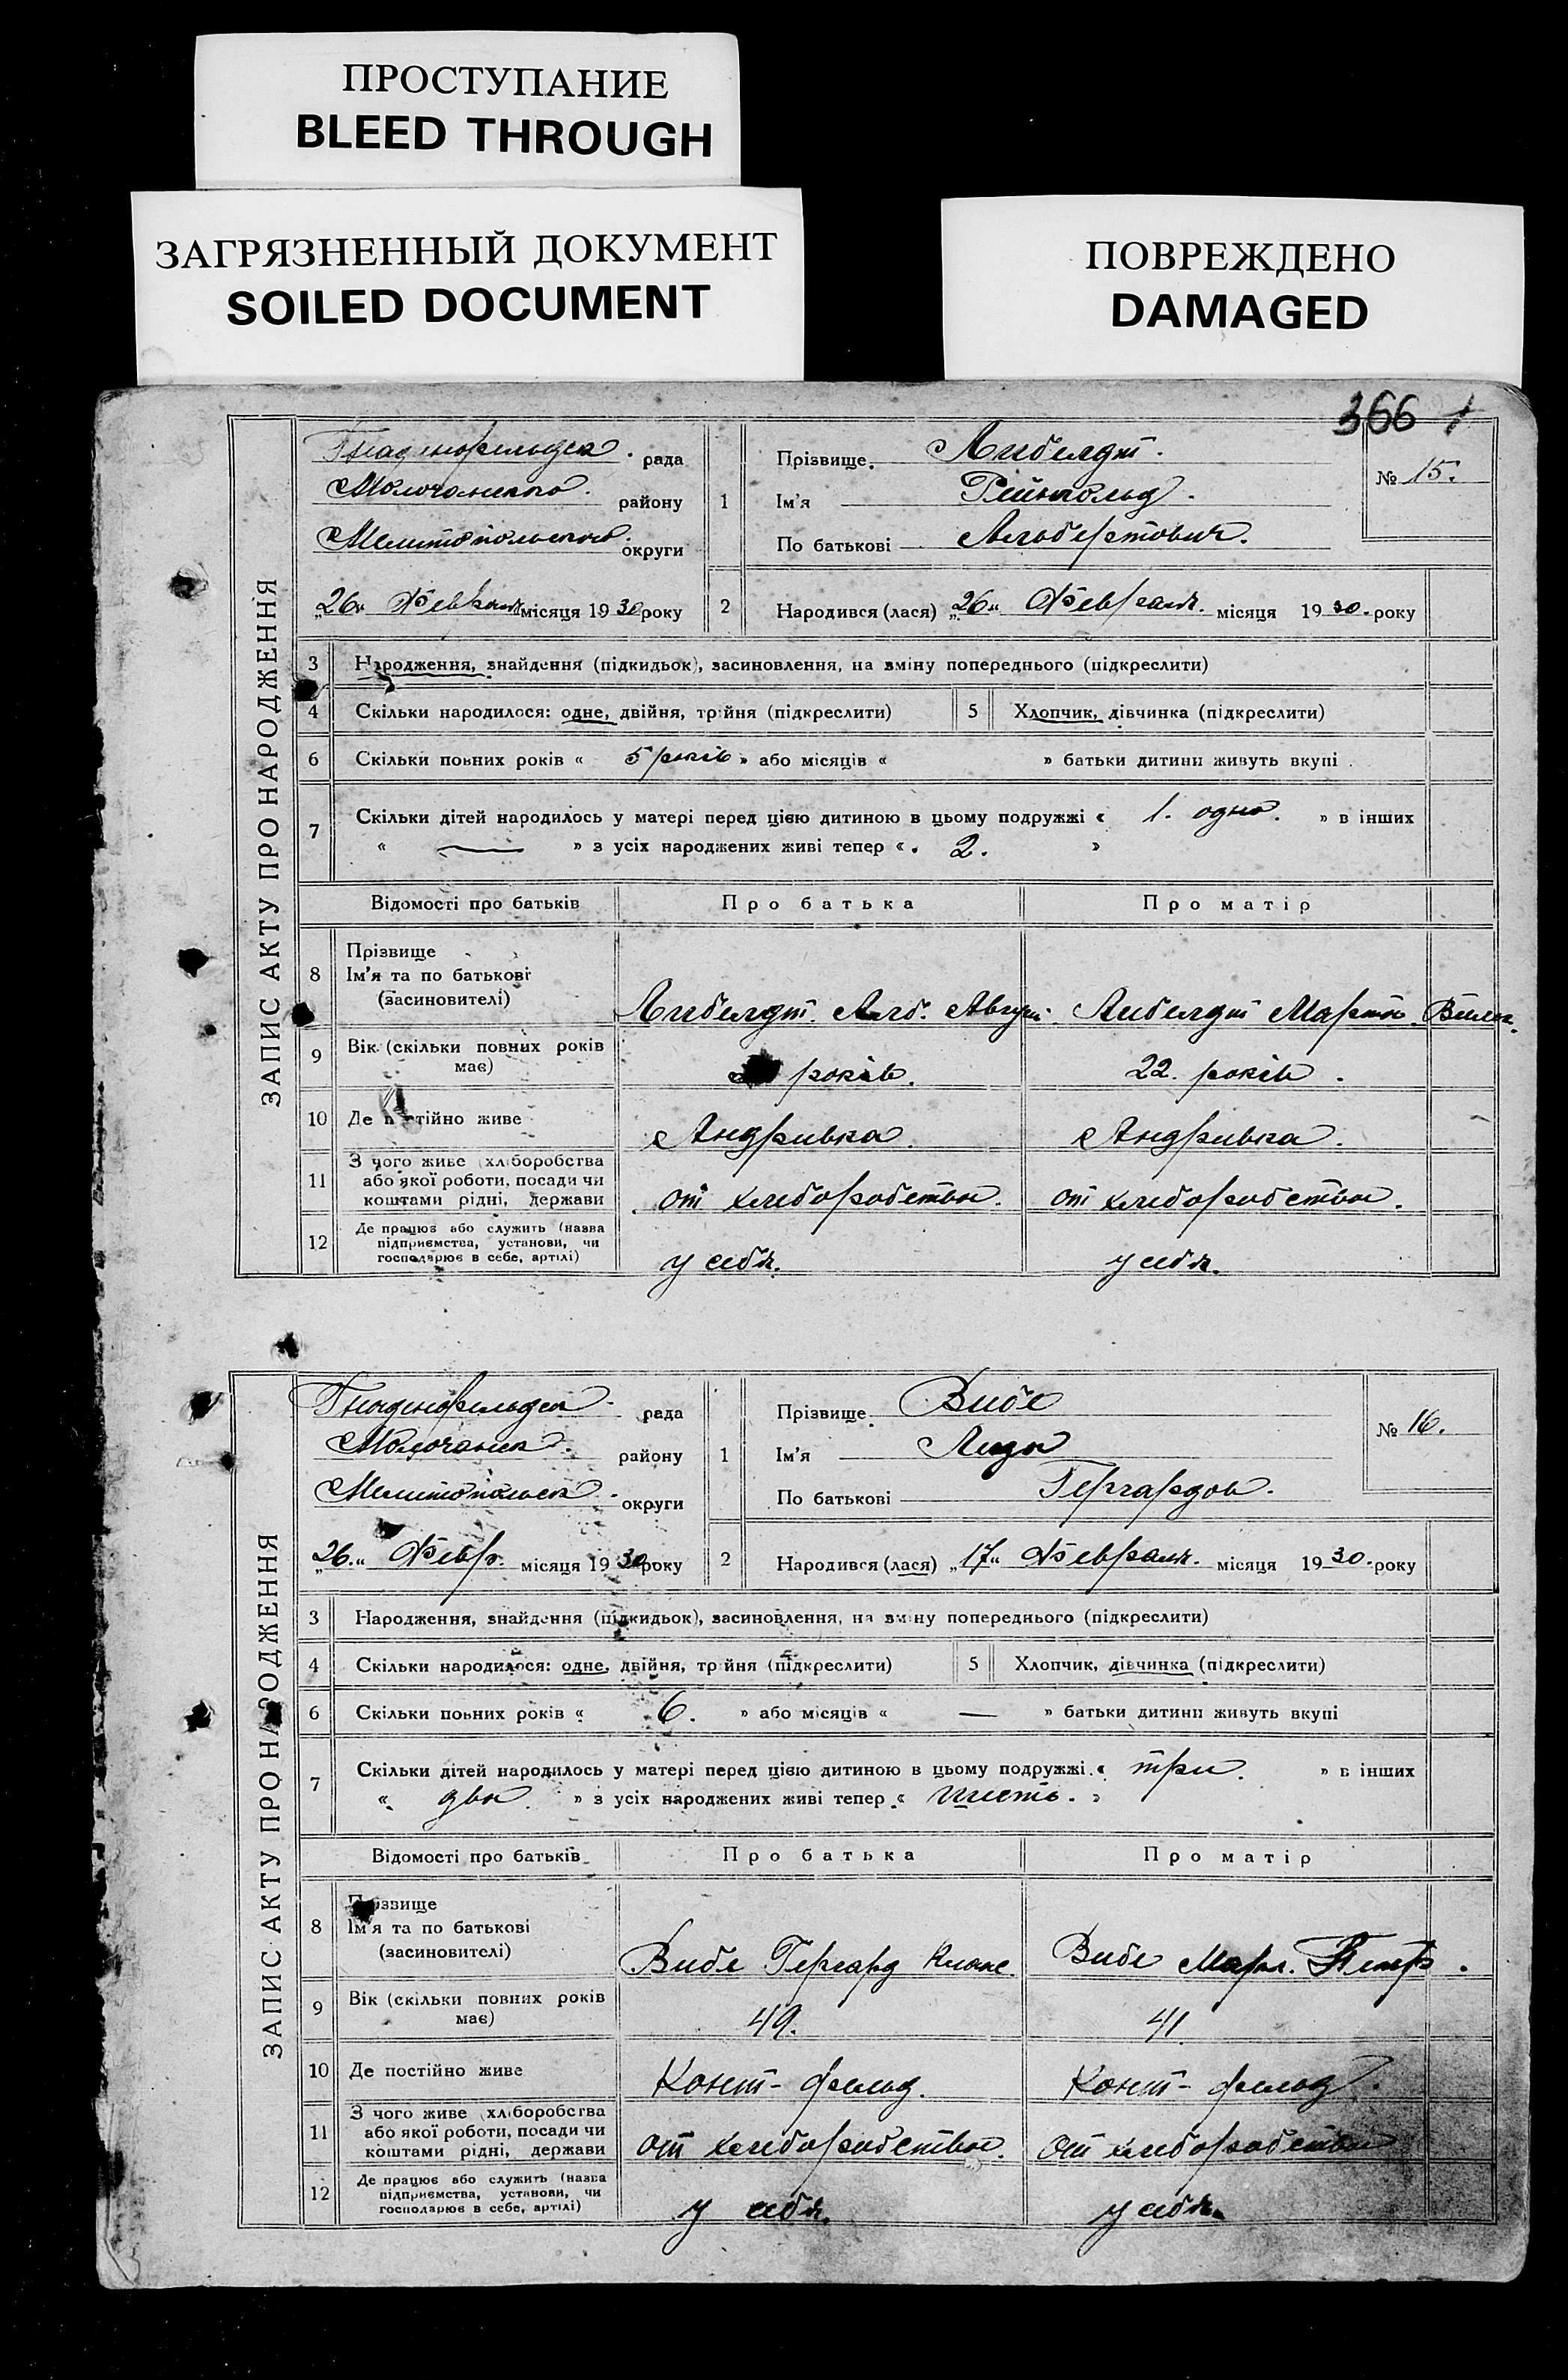 ПРОСТУПАНИЕ
BLEED THROUGH
ЗАГРЯЗНЕННЫЙ ДОКУМЕНТ
SOILED DOCUMENT
ПОВРЕЖДЕНО
DAMAGED
366
ЗАПИС АКТУ ПРО НАРОДЖЕННЯ
Гнаденфельдск. рада
Молочанского. району
Мелитопольского. округи
„26“ Февраля місяця 1930 року
1 Прізвище. Либелдт.
Ім'я Рейнгольд.
По батькові Альбертович.
№ 15.
2 Народився (лася) „26“ Февраля. місяця 1930. року
3 Народження, знайдення (підкидьок), засиновлення, на зміну попереднього (підкреслити)
4 Скільки народилося: одне, двійня, трійня (підкреслити) 5 Хлопчик, дівчинка (підкреслити)
6 Скільки повних років « 5 років » або місяців « » батьки дитини живуть вкупі
7 Скільки дітей народилось у матері перед цією дитиною в цьому подружжі « 1. одно. » в інших
« — » з усіх народжених живі тепер « 2. »
Відомості про батьків Про батька Про матір
8 Прізвище
Ім'я та по батькові
(засиновителі)
Либелдт. Алб. Август. Либелдт Марта
9 Вік (скільки повних років має)
років. 22. років.
10 Де постійно живе
Андривка. Андривка.
11 З чого живе (хліборобства
або якої роботи, посади чи
коштами рідні, держави
от хлеборобства. от хлеборобства.
12 Де працює або служить (назва
підприємства, установи, чи
господарює в себе, артілі)
у себя. у себя.
ЗАПИС АКТУ ПРО НАРОДЖЕННЯ
Гнаденфельдск. рада
Молочанск. району
Мелитопольск. округи
„26.“ Февр. місяця 1930. року
1 Прізвище. Вибе
Ім'я Лида
По батькові Гергардов.
№ 16.
2 Народився (лася) „17“ Февраля. місяця 1930. року
3 Народження, знайдення (підкидьок), засиновлення, на зміну попереднього (підкреслити)
4 Скільки народилося: одне, двійня, трійня (підкреслити) 5 Хлопчик, дівчинка (підкреслити)
6 Скільки повних років « 6. » або місяців « — » батьки дитини живуть вкупі
7 Скільки дітей народилось у матері перед цією дитиною в цьому подружжі « три. » в інших
« два. » з усіх народжених живі тепер « шесть. »
Відомості про батьків Про батька Про матір
8 Прізвище
Ім'я та по батькові
(засиновителі)
Вибе Гергард Клаас. Вибе Мария. Петр.
9 Вік (скільки повних років має)
49. 41
10 Де постійно живе
Конт-фельд. Конт-фельд.
11 З чого живе (хліборобства
або якої роботи, посади чи
коштами рідні, держави
от хлеборобства. от хлеборобства
12 Де працює або служить (назва
підприємства, установи, чи
господарює в себе, артілі)
у себя. у себя.